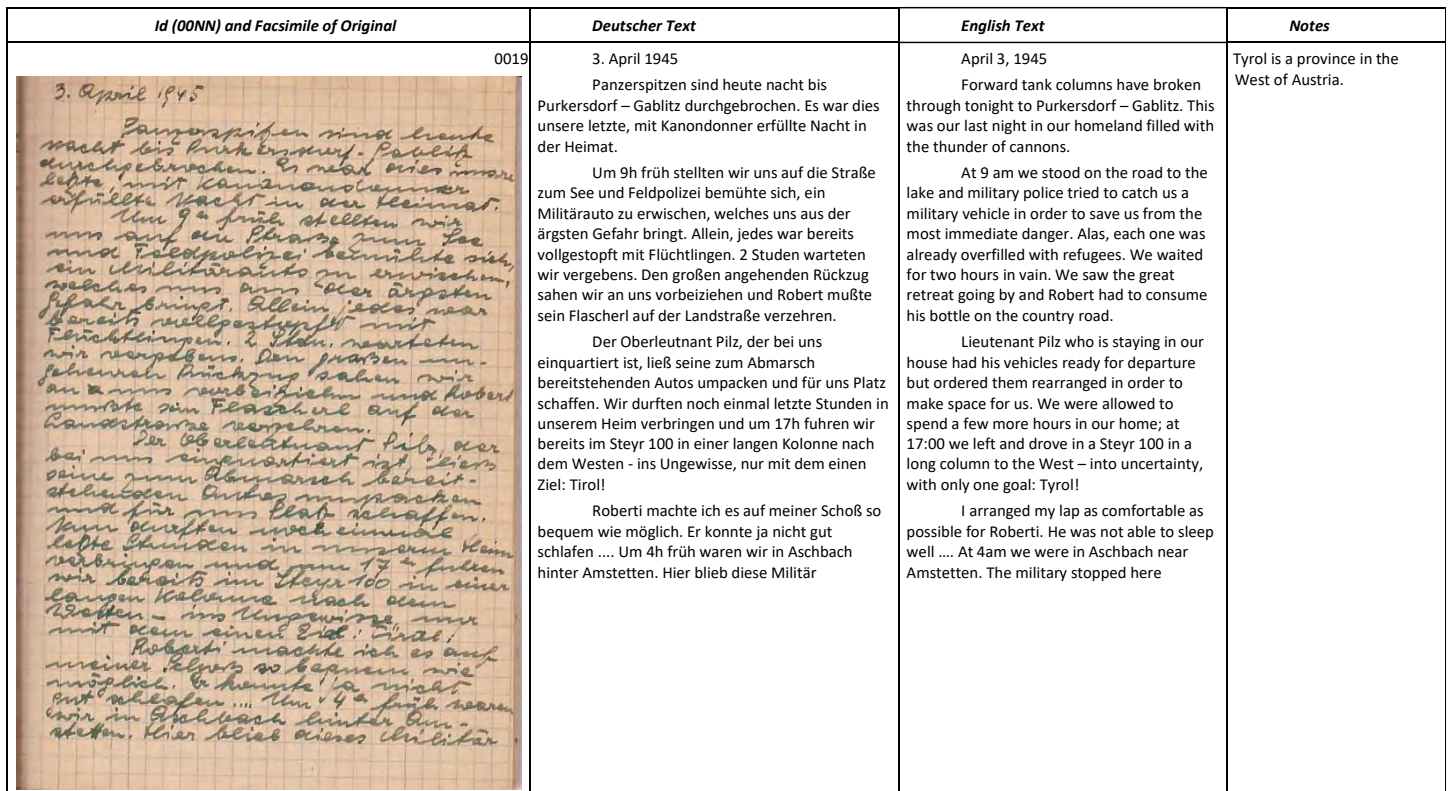 Id (00NN) and Facsimile of Original
Deutscher Text
English Text
Notes
0019
3. April 1945
Panzerspitzen sind heute
nacht bis Purkersdorf-Gablitz
durchgebrochen. Es war dies unsre
letzte, mit Kanonendonner
erfüllte Nacht in der Heimat.
Um 9h früh stellten wir
uns auf die Straße zum See
und Feldpolizei bemühte sich,
ein Militärauto zu erwischen,
welches uns aus der ärgsten
Gefahr bringt. Allein jedes war
bereits vollgestopft mit
Flüchtlingen. 2 Stdn. warteten
wir vergebens. Den großen un-
geheuren Rückzug sahen wir
an uns vorbeiziehn und Robert
mußte sein Flascherl auf der
Landstrasse verzehren.
Der Oberleutnant Pilz, der
bei uns einquartiert ist, liess
seine zum Abmarsch bereit-
stehenden Autos umpacken
und für uns Platz schaffen.
Nun durften noch einmal
letzte Stunden in unserem Heim
verbringen und um 17h fuhren
wir bereits im Steyr 100 in einer
langen Kolonne nach dem
Westen - ins Ungewisse, nur
mit dem einen Ziel: Tirol!
Roberti machte ich es auf
meiner Schoss so bequem wie
möglich. Er konnte ja nicht
gut schlafen ... Um 4h früh waren
wir in Aschbach hinter Am-
stetten. Hier blieb dieses Militär
3. April 1945
Panzerspitzen sind heute nacht bis
Purkersdorf – Gablitz durchgebrochen. Es war dies
unsere letzte, mit Kanondonner erfüllte Nacht in
der Heimat.
Um 9h früh stellten wir uns auf die Straße
zum See und Feldpolizei bemühte sich, ein
Militärauto zu erwischen, welches uns aus der
ärgsten Gefahr bringt. Allein, jedes war bereits
vollgestopft mit Flüchtlingen. 2 Studen warteten
wir vergebens. Den großen angehenden Rückzug
sahen wir an uns vorbeiziehen und Robert mußte
sein Flascherl auf der Landstraße verzehren.
Der Oberleutnant Pilz, der bei uns
einquartiert ist, ließ seine zum Abmarsch
bereitstehenden Autos umpacken und für uns Platz
schaffen. Wir durften noch einmal letzte Stunden in
unserem Heim verbringen und um 17h fuhren wir
bereits im Steyr 100 in einer langen Kolonne nach
dem Westen - ins Ungewisse, nur mit dem einen
Ziel: Tirol!
Roberti machte ich es auf meiner Schoß so
bequem wie möglich. Er konnte ja nicht gut
schlafen .... Um 4h früh waren wir in Aschbach
hinter Amstetten. Hier blieb diese Militär
April 3, 1945
Forward tank columns have broken
through tonight to Purkersdorf – Gablitz. This
was our last night in our homeland filled with
the thunder of cannons.
At 9 am we stood on the road to the
lake and military police tried to catch us a
military vehicle in order to save us from the
most immediate danger. Alas, each one was
already overfilled with refugees. We waited
for two hours in vain. We saw the great
retreat going by and Robert had to consume
his bottle on the country road.
Lieutenant Pilz who is staying in our
house had his vehicles ready for departure
but ordered them rearranged in order to
make space for us. We were allowed to
spend a few more hours in our home; at
17:00 we left and drove in a Steyr 100 in a
long column to the West – into uncertainty,
with only one goal: Tyrol!
I arranged my lap as comfortable as
possible for Roberti. He was not able to sleep
well .... At 4am we were in Aschbach near
Amstetten. The military stopped here
Tyrol is a province in the
West of Austria.